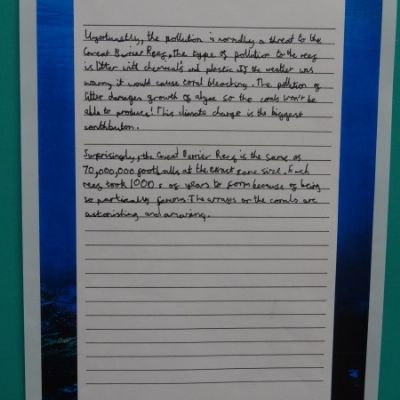 Unfortunatly, the pollution is a threat to the
Great Barrier Reef. The type of pollution to the reef
is litter with chemicals and plastic. If the weather was
warm it would cause coral bleaching. The pollution of
litter damages growth of algae so the corals won't be
able to produce! This climate change is the biggest
contributor.
Surprisingly, the Great Barrier Reef is the same as
70,000,000 footballs at the exact same size. Each
reef took 1000s of years to form because of being
so partically famous. The arrays or the corals are
astonishing and amazing.